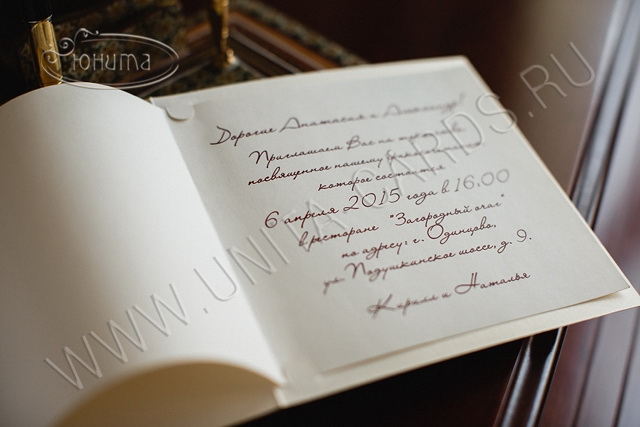 Юнита
Дорогие Анатасия и Александр!
Приглашаем Вас на торжество
посвященное нашему бракосочетанию
которое состоится
6 апреля 2015 года в 16.00
в ресторане "Загородный очаг"
по адресу: г. Одинцово,
ул. Подушкинское шоссе, д. 9.
Кирилл и Наталья
WWW.UNITA-CARDS.RU